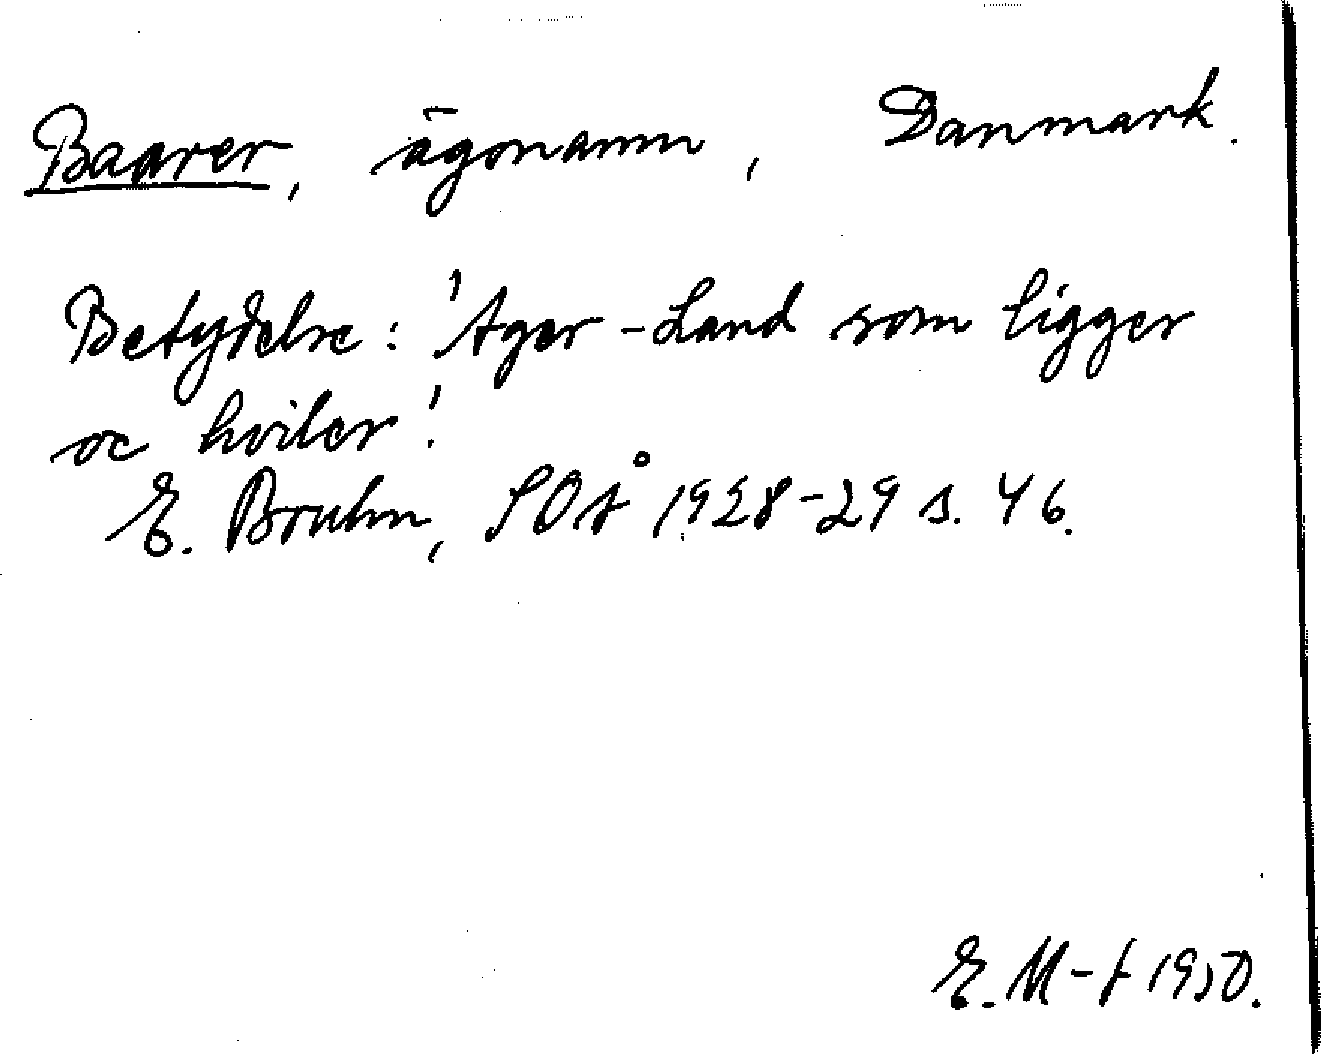 Baarer, ägonamn, Danmark.
Betydelse: 'Ager-Land som ligger
oc hviler'.
E. Bruhn, SOÅ 1928-29 s. 46.
E. M-t 1950.